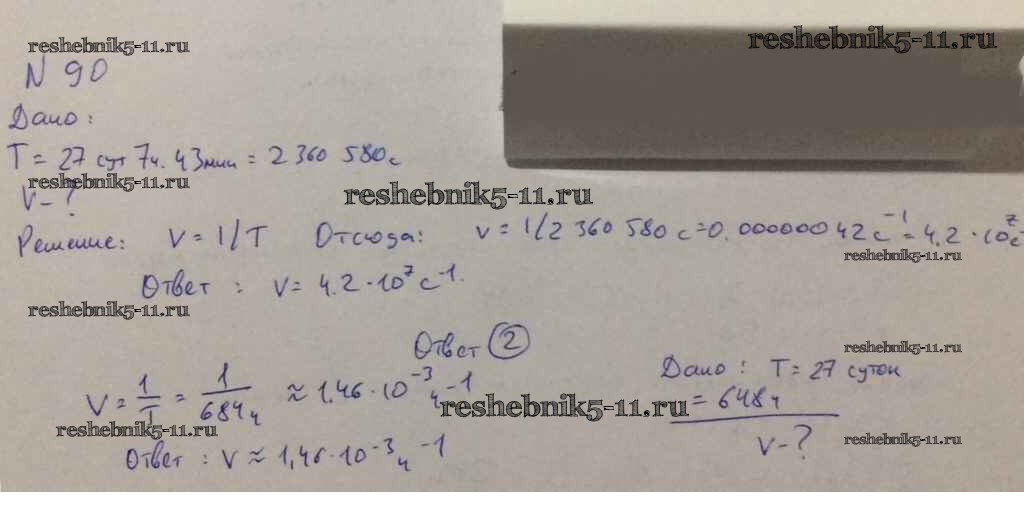 reshebnik5-11.ru
reshebnik5-11.ru
N 90
Дано:
T = 27 сут 7ч. 43мин = 2 360 580 с
reshebnik5-11.ru
ν - ?
reshebnik5-11.ru
Решение: ν = 1/T Отсюда: ν = 1/2 360 580 с = 0.00000042 с⁻¹ = 4.2 · 10⁷ с⁻
reshebnik5-11.ru
Ответ : ν = 4.2 · 10⁷ с⁻¹.
reshebnik5-11.ru
Ответ 2
reshebnik5-11.ru
ν = 1/T = 1/684ч ≈ 1,46 · 10⁻³ ч⁻¹
Дано : T = 27 суток
= 648ч
reshebnik5-11.ru
reshebnik5-11.ru
ν - ?
reshebnik5-11.ru
Ответ : ν ≈ 1,46 · 10⁻³ ч⁻¹